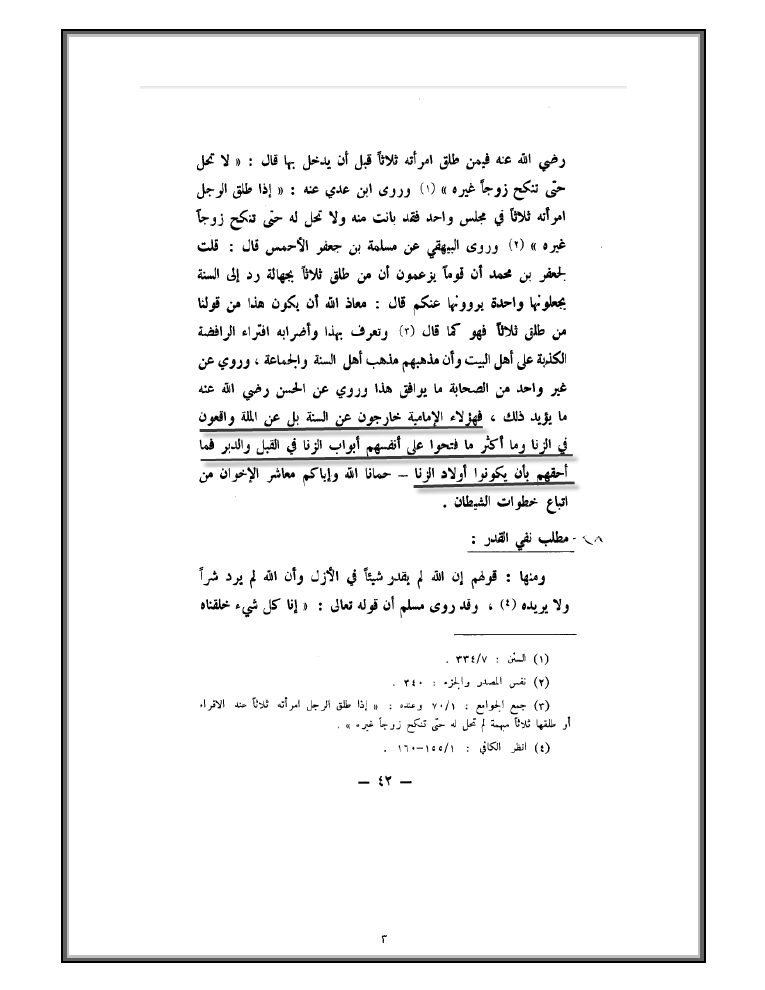 رضي الله عنه فيمن طلق امرأته ثلاثاً قبل أن يدخل بها قال : « لا تحل
حتى تنكح زوجاً غيره » (١) وروى ابن عدي عنه : « إذا طلق الرجل
امرأته ثلاثاً في مجلس واحد فقد بانت منه ولا تحل له حتى تنكح زوجاً
غيره » (٢) وروى البيهقي عن مسلمة بن جعفر الأحمس قال : قلت
لجعفر بن محمد أن قوماً يزعمون أن من طلق ثلاثاً بجهالة رد إلى السنة
يجعلونها واحدة يروونها عنكم قال : معاذ الله أن يكون هذا من قولنا
من طلق ثلاثاً فهو كما قال (٣) وتعرف بهذا وأضرابه افتراء الرافضة
الكذبة على أهل البيت وأن مذهبهم مذهب أهل السنة والجماعة ، وروي عن
غير واحد من الصحابة ما يوافق هذا وروي عن الحسن رضي الله عنه
ما يؤيد ذلك ، فهؤلاء الإمامية خارجون عن السنة بل عن الملة واقعون
في الزنا وما أكثر ما فتحوا على أنفسهم أبواب الزنا في القبل والدبر فما
أحقهم بأن يكونوا أولاد الزنا – حمانا الله وإياكم معاشر الإخوان من
اتباع خطوات الشيطان .
٢٨ - مطلب نفي القدر :
ومنها : قولهم إن الله لم يقدر شيئاً في الأزل وأن الله لم يرد شراً
ولا يريده (٤) ، وقد روى مسلم أن قوله تعالى : « إنا كل شيء خلقناه
(١) السنن : ٣٣٤/٧ .
(٢) نفس المصدر والجزء : ٣٤٠ .
(٣) جمع الجوامع : ٧٠/١ وعنده : « إذا طلق الرجل امرأته ثلاثاً عند الاقراء
أو طلقها ثلاثاً مبهمة لم تحل له حتى تنكح زوجاً غيره » .
(٤) انظر الكافي : ١٥٥/١–١٦٠ .
— ٤٢ —
٣